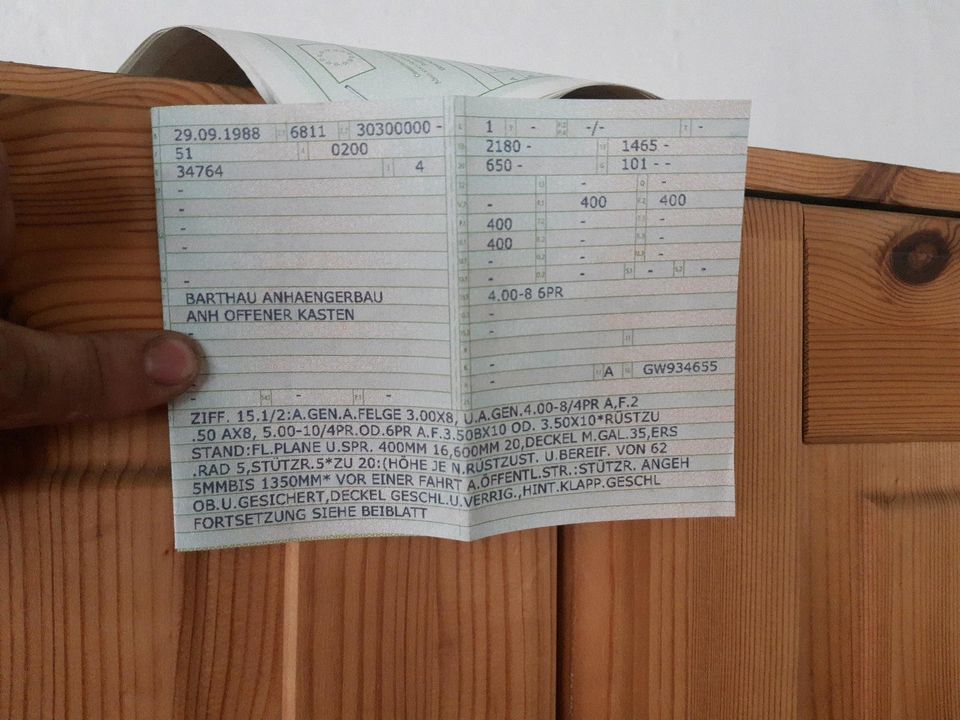 29.09.1988 6811 30300000 -
51 0200
34764 4
-
-
-
-
-
BARTHAU ANHAENGERBAU
ANH OFFENER KASTEN
-
- - -
1 - -/- -
2180 - 1465 -
650 - 101 - -
- -
- 400 400
400 - -
400 - -
- - -
- - - -
4.00-8 6PR
-
-
-
- A GW934655
ZIFF. 15.1/2:A.GEN.A.FELGE 3.00X8, U.A.GEN.4.00-8/4PR A,F.2
.50 AX8, 5.00-10/4PR.OD.6PR A.F.3.50BX10 OD. 3.50X10*RÜSTZU
STAND:FL.PLANE U.SPR. 400MM 16,600MM 20,DECKEL M.GAL.35,ERS
.RAD 5,STÜTZR.5*ZU 20:(HÖHE JE N.RÜSTZUST. U.BEREIF. VON 62
5MMBIS 1350MM* VOR EINER FAHRT A.ÖFFENTL.STR.:STÜTZR. ANGEH
OB.U.GESICHERT,DECKEL GESCHL.U.VERRIG.,HINT.KLAPP.GESCHL
FORTSETZUNG SIEHE BEIBLATT